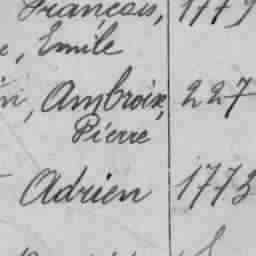 François, 1779
Emile
Ambroix, 227
Pierre
Adrien 1773